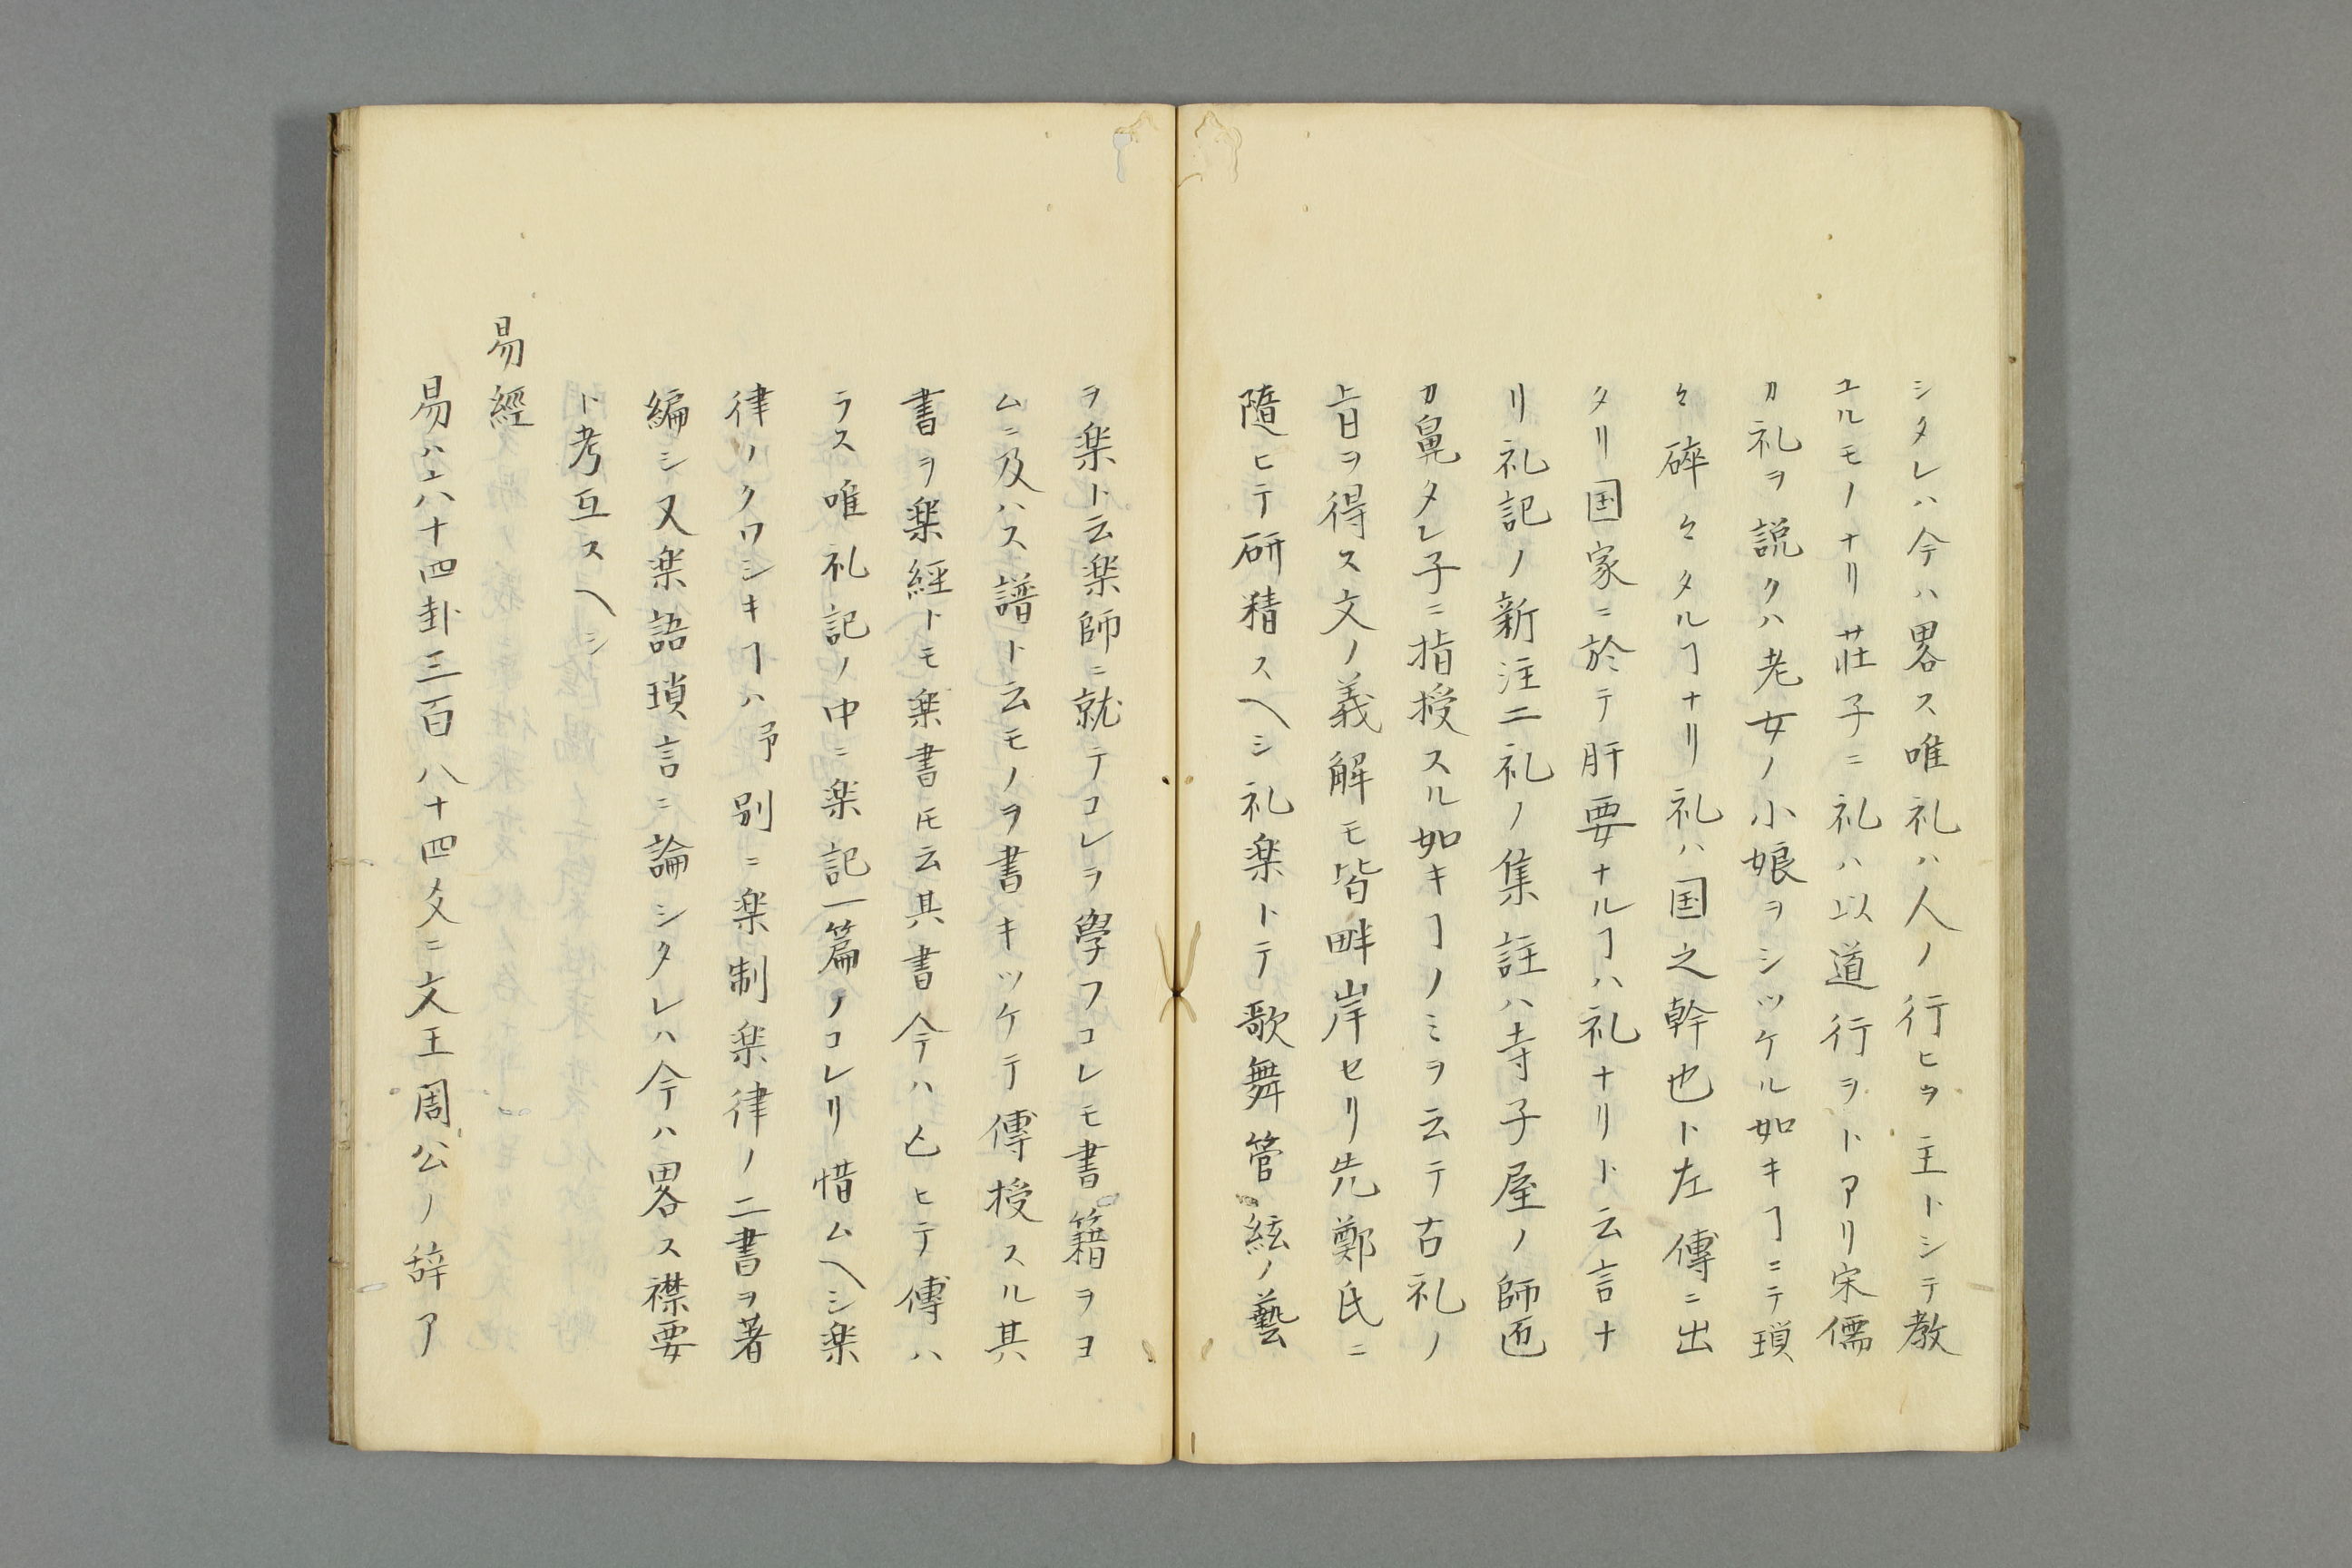 シタレハ今ハ畧ス唯礼ハ人ノ行ヒヲ主トシテ教
ユルモノナリ荘子ニ礼ハ以道行ヲトアリ宋儒
カ礼ヲ説クハ老女ノ小娘ヲシツケル如キヿニテ瑣
々碎々タルヿナリ礼ハ国之幹也ト左傳ニ出
タリ国家ニ於テ肝要ナルヿハ礼ナリト云言ナ
リ礼記ノ新注二礼ノ集註ハ寺子屋ノ師匠
カ鼻タレ子ニ指授スル如キヿノミヲ云テ古礼ノ
旨ヲ得ス文ノ義解モ皆畔岸セリ先鄭氏ニ
隨ヒテ研精スヘシ礼楽トテ歌舞管絃ノ藝
ヲ楽ト云楽師ニ就テコレヲ學フコレモ書籍ヲヨ
ムニ及ハス譜ト云モノヲ書キツケテ傳授スル其
書ヲ楽經トモ楽書𪜈云其書今ハ亡ヒテ傳ハ
ラス唯礼記ノ中ニ楽記一篇ノコレリ惜ムヘシ楽
律ノクワシキヿハ予別ニ楽制楽律ノ二書ヲ著
編シ又楽語瑣言ニ論シタレハ今ハ畧ス襟要
ト考互スヘシ
易經
易ハ六十四卦三百八十四爻ニ文王周公ノ辞ア